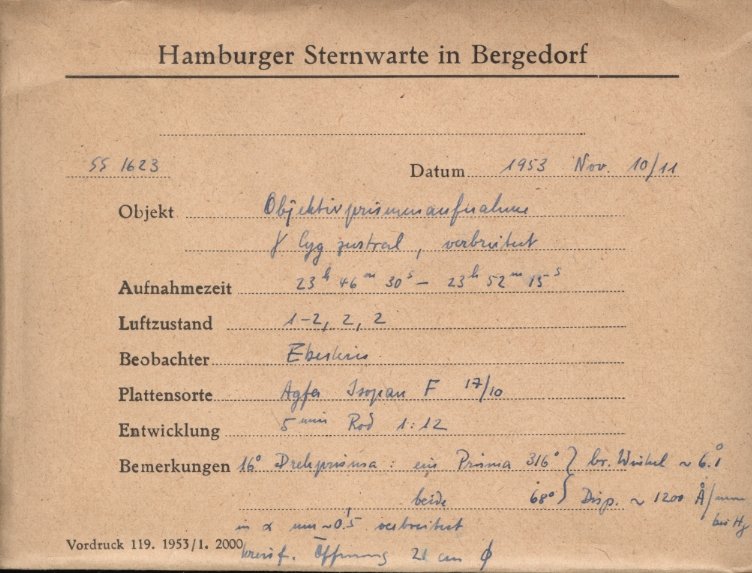 Hamburger Sternwarte in Bergedorf
SS 1623
Datum 1953 Nov. 10/11
Objekt Objektivprismenaufnahme
γ Cyg zentral, verbreitert
Aufnahmezeit 23ʰ 46ᵐ 30ˢ – 23ʰ 52ᵐ 15ˢ
Luftzustand 1-2, 2, 2
Beobachter
Plattensorte Agfa Isopan F 17/10
Entwicklung 5 min Rod 1:12
Bemerkungen 16° Drehprisma: ein Prisma 316° } br. Winkel ~ 6.°1
beide 68° } Disp. ~ 1200 Å/mm
bei Hγ
in α um ~0.5 verbreitert
Vordruck 119. 1953/1. 2000
Öffnung 21 cm ϕ